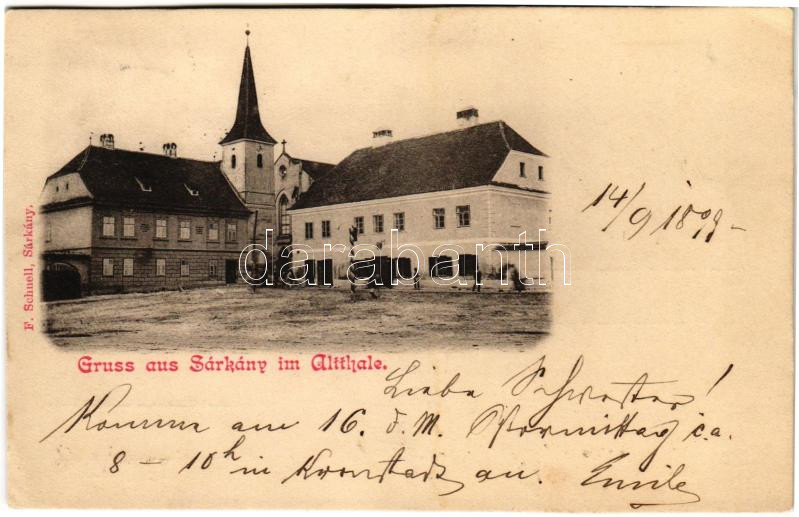 F. Schnell, Sárkány.
darabanth
14/9 1899 -
Gruss aus Sárkány im Altthale.
Liebe Schwester!
Komme am 16. d. M. Vormittag c.a.
8 - 10h in Kronstadt an. Emile